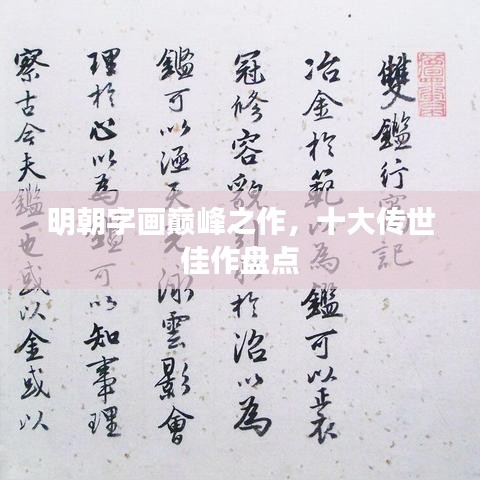 明朝字画巅峰之作，十大传世
佳作盘点
雙鑑行窩記
冶金於範以為鑑可以正衣
冠修容貌引水於沼以為
鑑可以涵天光泳雲影會
理於心以為鑑可以知事理
察古今夫鑑一也或以金或以